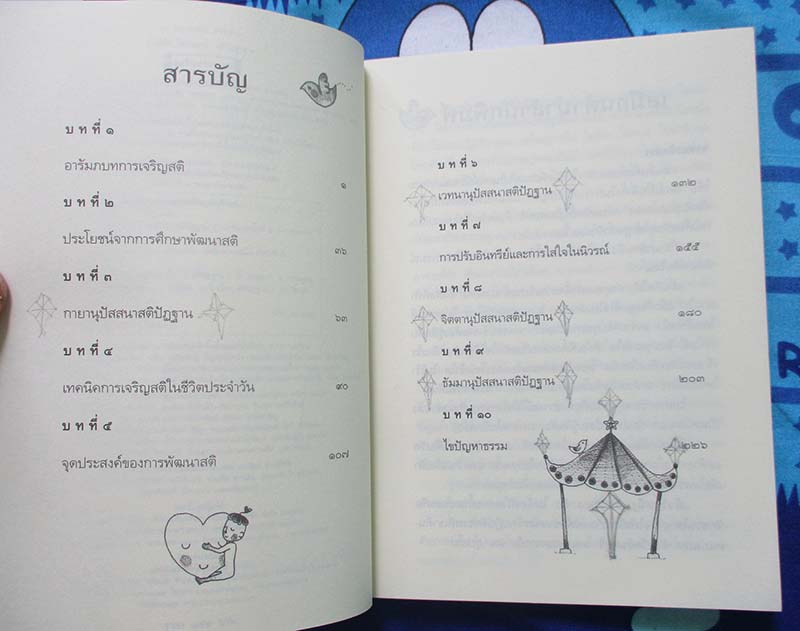 สารบัญ
บทที่ ๑
อารัมภบทการเจริญสติ
๑
บทที่ ๒
ประโยชน์จากการศึกษาพัฒนาสติ
๓๖
บทที่ ๓
กายานุปัสสนาสติปัฏฐาน
๖๓
บทที่ ๔
เทคนิคการเจริญสติในชีวิตประจำวัน
๙๐
บทที่ ๕
จุดประสงค์ของการพัฒนาสติ
๑๐๗
บทที่ ๖
เวทนานุปัสสนาสติปัฏฐาน
๑๓๒
บทที่ ๗
การปรับอินทรีย์และการใส่ใจในนิวรณ์
๑๕๕
บทที่ ๘
จิตตานุปัสสนาสติปัฏฐาน
๑๘๐
บทที่ ๙
ธัมมานุปัสสนาสติปัฏฐาน
๒๐๓
บทที่ ๑๐
ไขปัญหาธรรม
๒๒๖